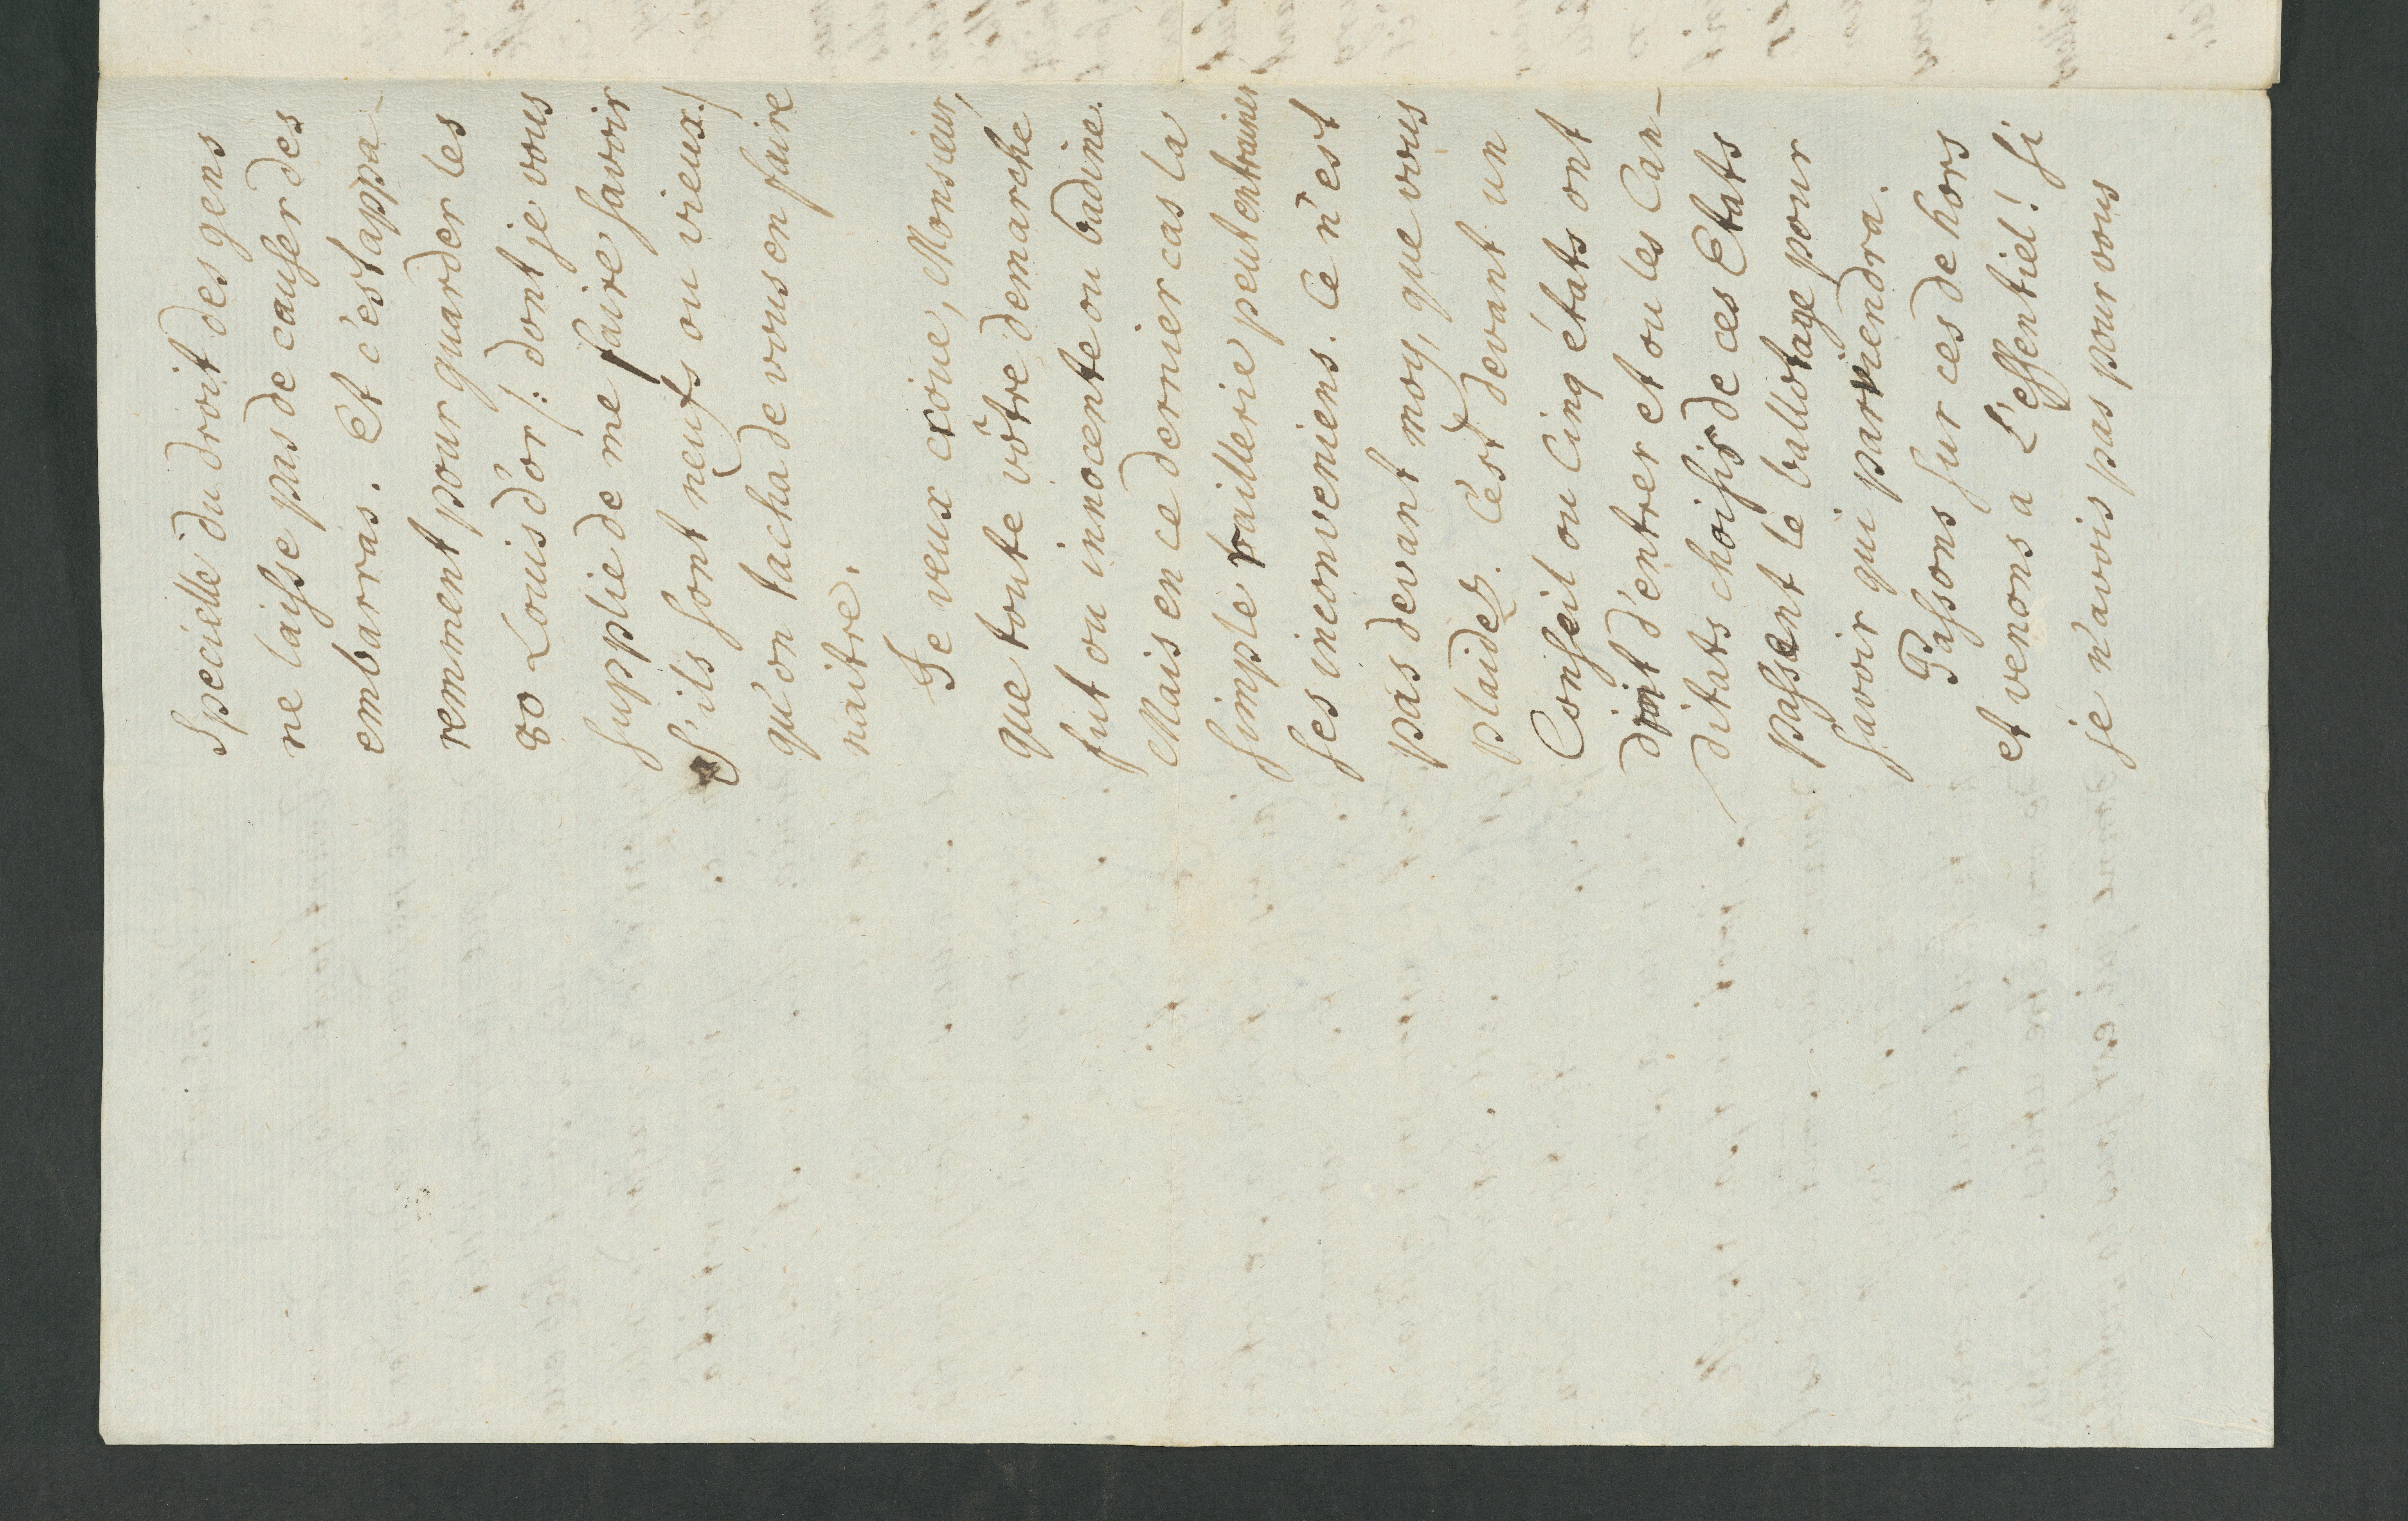 Specielle du droit des gens
ne laisse pas de causer des
embarras. Et c'est appa-
remment pour guarder les
80 Louis d'or /: dont je vous
supplie de me faire savoir
S'ils sont neufs ou vieux :/
qu'on tacha de vous en faire
naitre.
Je veux croire, Monsieur,
que toute vôtre demarche
fut ou innocente ou badine.
Mais en ce dernier cas la
simple raillerie peut entrainer
ses inconveniens. Ce n'est
pas devant moy, que vous
plaidés. C'est devant un
Conseil ou Cinq états ont
droit d'entrer et ou les Can-
ditats choisis de ces Etats
passent le ballotage pour
savoir qui parviendra.
Passons sur ces dehors
et venons a L'essentiel! Si
je n'avois pas pour vous